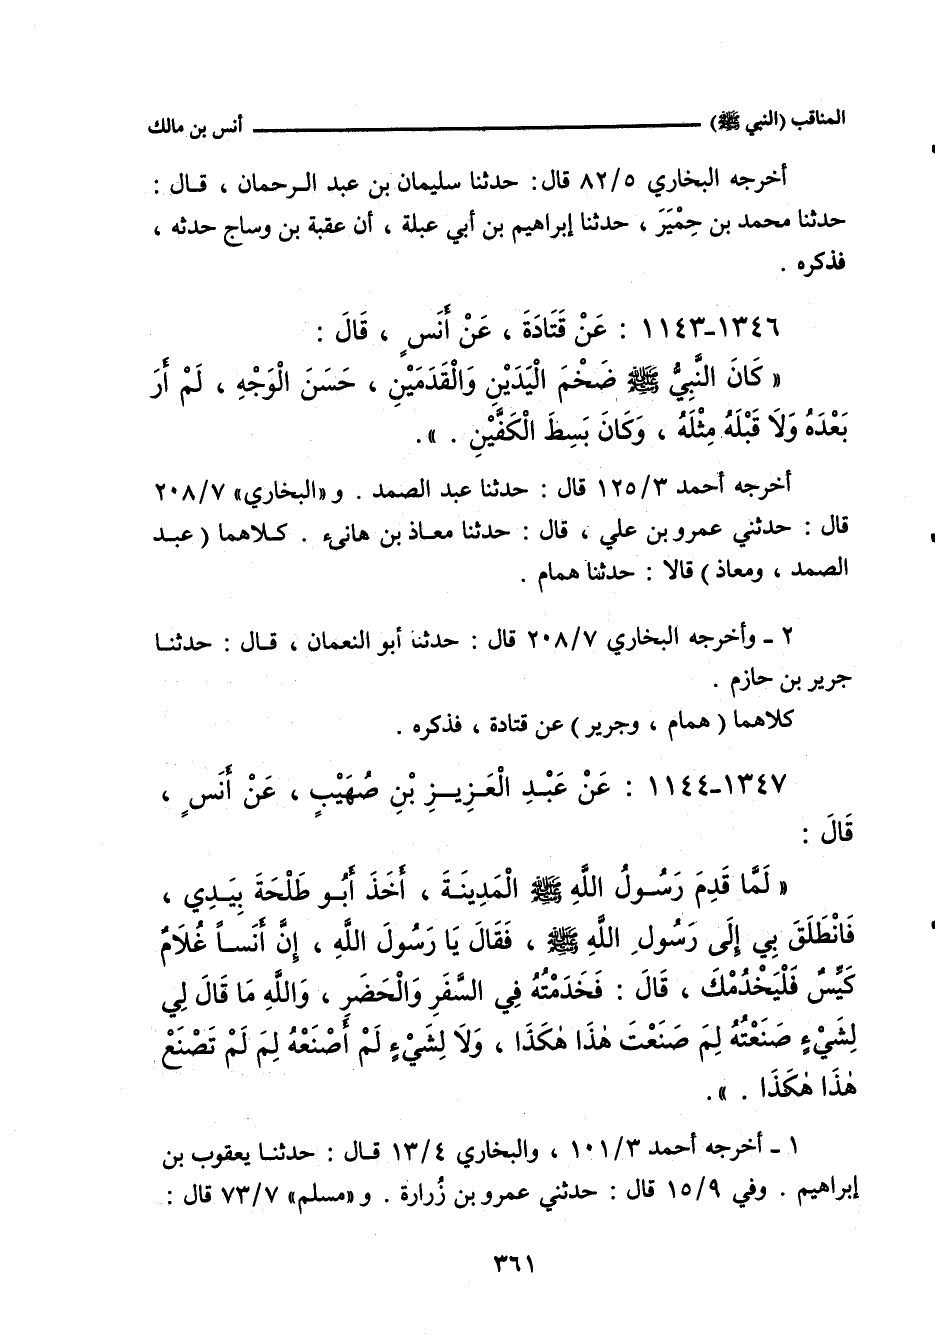 المناقب (النبي ﷺ) ــــــــــــــــ أنس بن مالك
أخرجه البخاري ٨٢/٥ قال: حدثنا سليمان بن عبد الـرحمان ، قـال :
حدثنا محمد بن حِمْيَرَ ، حدثنا إبراهيم بن أبي عبلة ، أن عقبة بن وساج حدثه ،
فذكره .
١٣٤٦ـ١١٤٣ : عَنْ قَتَادَةَ ، عَنْ أَنَسٍ ، قَالَ :
« كَانَ النَّبِيُّ ﷺ ضَخْمَ الْيَدَيْنِ وَالْقَدَمَيْنِ ، حَسَنَ الْوَجْهِ ، لَمْ أَرَ
بَعْدَهُ وَلَا قَبْلَهُ مِثْلَهُ ، وَكَانَ بَسِطَ الْكَفَّيْنِ . ».
أخرجه أحمد ١٢٥/٣ قال : حدثنا عبد الصمد . و «البخاري» ٢٠٨/٧
قال : حدثني عمرو بن علي ، قال : حدثنا معـاذ بن هانىء . كـلاهما ( عبـد
الصمد ، ومعاذ ) قالا : حدثنا همام .
٢ ـ وأخرجه البخاري ٢٠٨/٧ قال : حدثنا أبو النعمان ، قـال : حدثنـا
جرير بن حازم .
كلاهما ( همام ، وجرير ) عن قتادة ، فذكره .
١٣٤٧ـ١١٤٤ : عَنْ عَبْـدِ الْعَـزِيـزِ بْنِ صُهَيْبٍ ، عَنْ أَنَسٍ ،
قَالَ :
« لَمَّا قَدِمَ رَسُـولُ اللَّهِ ﷺ الْمَدِينَـةَ ، أَخَذَ أَبُـو طَلْحَةَ بِيَـدِي ،
فَانْطَلَقَ بِي إِلَى رَسُولِ اللَّهِ ﷺ ، فَقَالَ يَا رَسُولَ اللَّهِ ، إِنَّ أَنَسـاً غُلَامٌ
كَيِّسٌ فَلْيَخْدُمْكَ ، قَالَ : فَخَدَمْتُهُ فِي السَّفَرِ وَالْحَضَرِ ، وَاللَّهِ مَا قَالَ لِي
لِشَيْءٍ صَنَعْتُهُ لِمَ صَنَعْتَ هٰذَا هٰكَذَا ، وَلَا لِشَيْءٍ لَمْ أَصْنَعْهُ لِمَ لَمْ تَصْنَعْ
هٰذَا هٰكَذَا . ».
١ ـ أخرجه أحمد ١٠١/٣ ، والبخاري ١٣/٤ قـال : حدثنـا يعقوب بن
إبراهيم . وفي ١٥/٩ قال : حدثني عمرو بن زُرارة . و «مسلم» ٧٣/٧ قال :
٣٦١